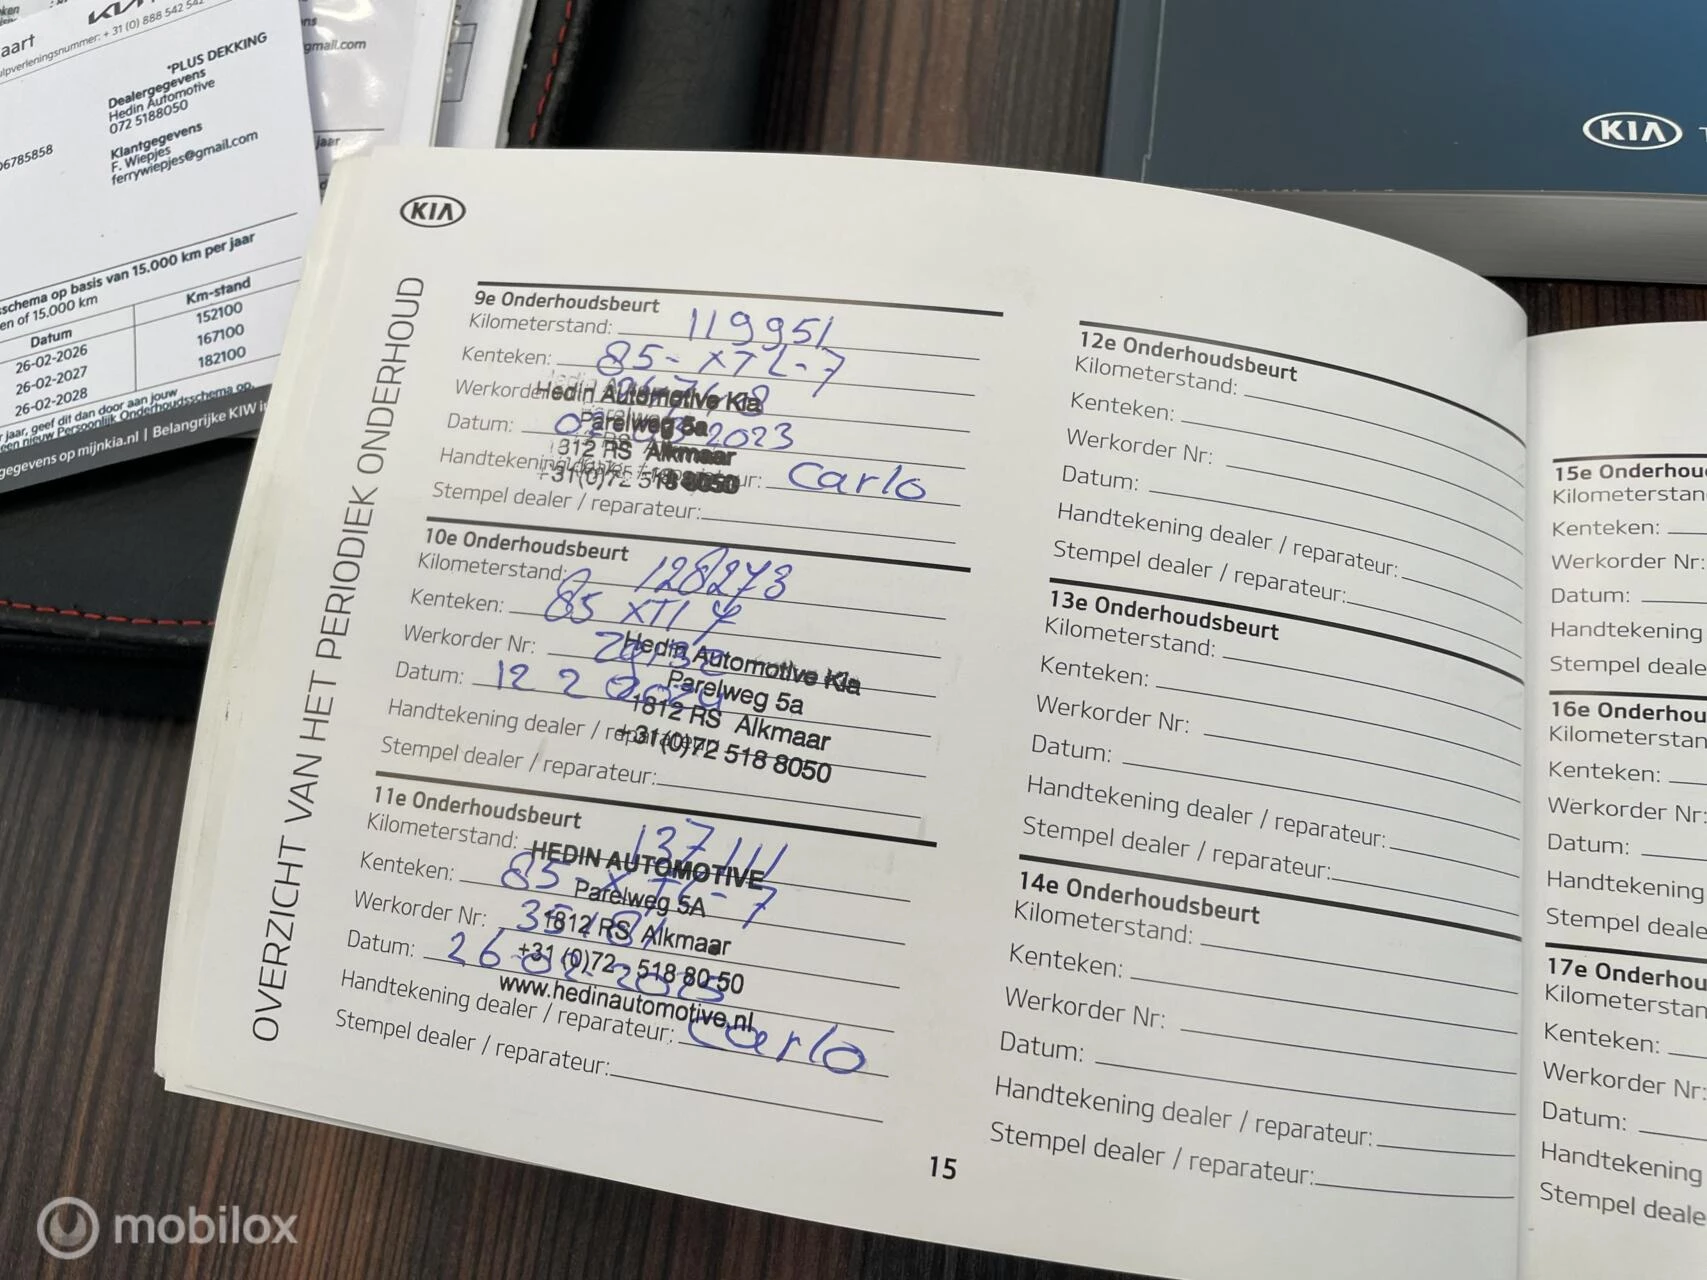 KIA
aart
lpverleningsnummer: + 31 (0) 888 542 542
*PLUS DEKKING
Dealergegevens
Hedin Automotive
072 5188050
Klantgegevens
F. Wiepjes
ferrywiepjes@gmail.com
06785858
schema op basis van 15.000 km per jaar
en of 15.000 km
Datum Km-stand
26-02-2026 152100
26-02-2027 167100
26-02-2028 182100
jaar, geef dit dan door aan jouw
een nieuw Persoonlijk Onderhoudsschema op.
gegevens op mijnkia.nl | Belangrijke KIW
gmail.com
jaar
KIA
KIA
OVERZICHT VAN HET PERIODIEK ONDERHOUD
9e Onderhoudsbeurt
Kilometerstand: 119951
Kenteken: 85-XTL-7
Werkorder
Hedin Automotive Kia
Parelweg 5a
Datum: 2023
1812 RS Alkmaar
Handtekening dealer / reparateur: Carlo
+31(0)72 518 8050
Stempel dealer / reparateur:
10e Onderhoudsbeurt
Kilometerstand: 128273
Kenteken: 85 XTL 7
Werkorder Nr:
Hedin Automotive Kia
Parelweg 5a
Datum: 12 2 2024
1812 RS Alkmaar
Handtekening dealer / reparateur:
+31(0)72 518 8050
Stempel dealer / reparateur:
11e Onderhoudsbeurt
Kilometerstand: 137111
HEDIN AUTOMOTIVE
Kenteken: 85-XTL-7
Parelweg 5A
Werkorder Nr:
1812 RS Alkmaar
Datum: 26-02-2025
+31 (0)72 518 80 50
www.hedinautomotive.nl
Handtekening dealer / reparateur: Carlo
Stempel dealer / reparateur:
12e Onderhoudsbeurt
Kilometerstand:
Kenteken:
Werkorder Nr:
Datum:
Handtekening dealer / reparateur:
Stempel dealer / reparateur:
13e Onderhoudsbeurt
Kilometerstand:
Kenteken:
Werkorder Nr:
Datum:
Handtekening dealer / reparateur:
Stempel dealer / reparateur:
14e Onderhoudsbeurt
Kilometerstand:
Kenteken:
Werkorder Nr:
Datum:
Handtekening dealer / reparateur:
Stempel dealer / reparateur:
15
15e Onderhou
Kilometerstan
Kenteken:
Werkorder Nr:
Datum:
Handtekening
Stempel deale
16e Onderhou
Kilometerstan
Kenteken:
Werkorder Nr:
Datum:
Handtekening
Stempel deale
17e Onderhou
Kilometerstan
Kenteken:
Werkorder Nr:
Datum:
Handtekening
Stempel deale
mobilox